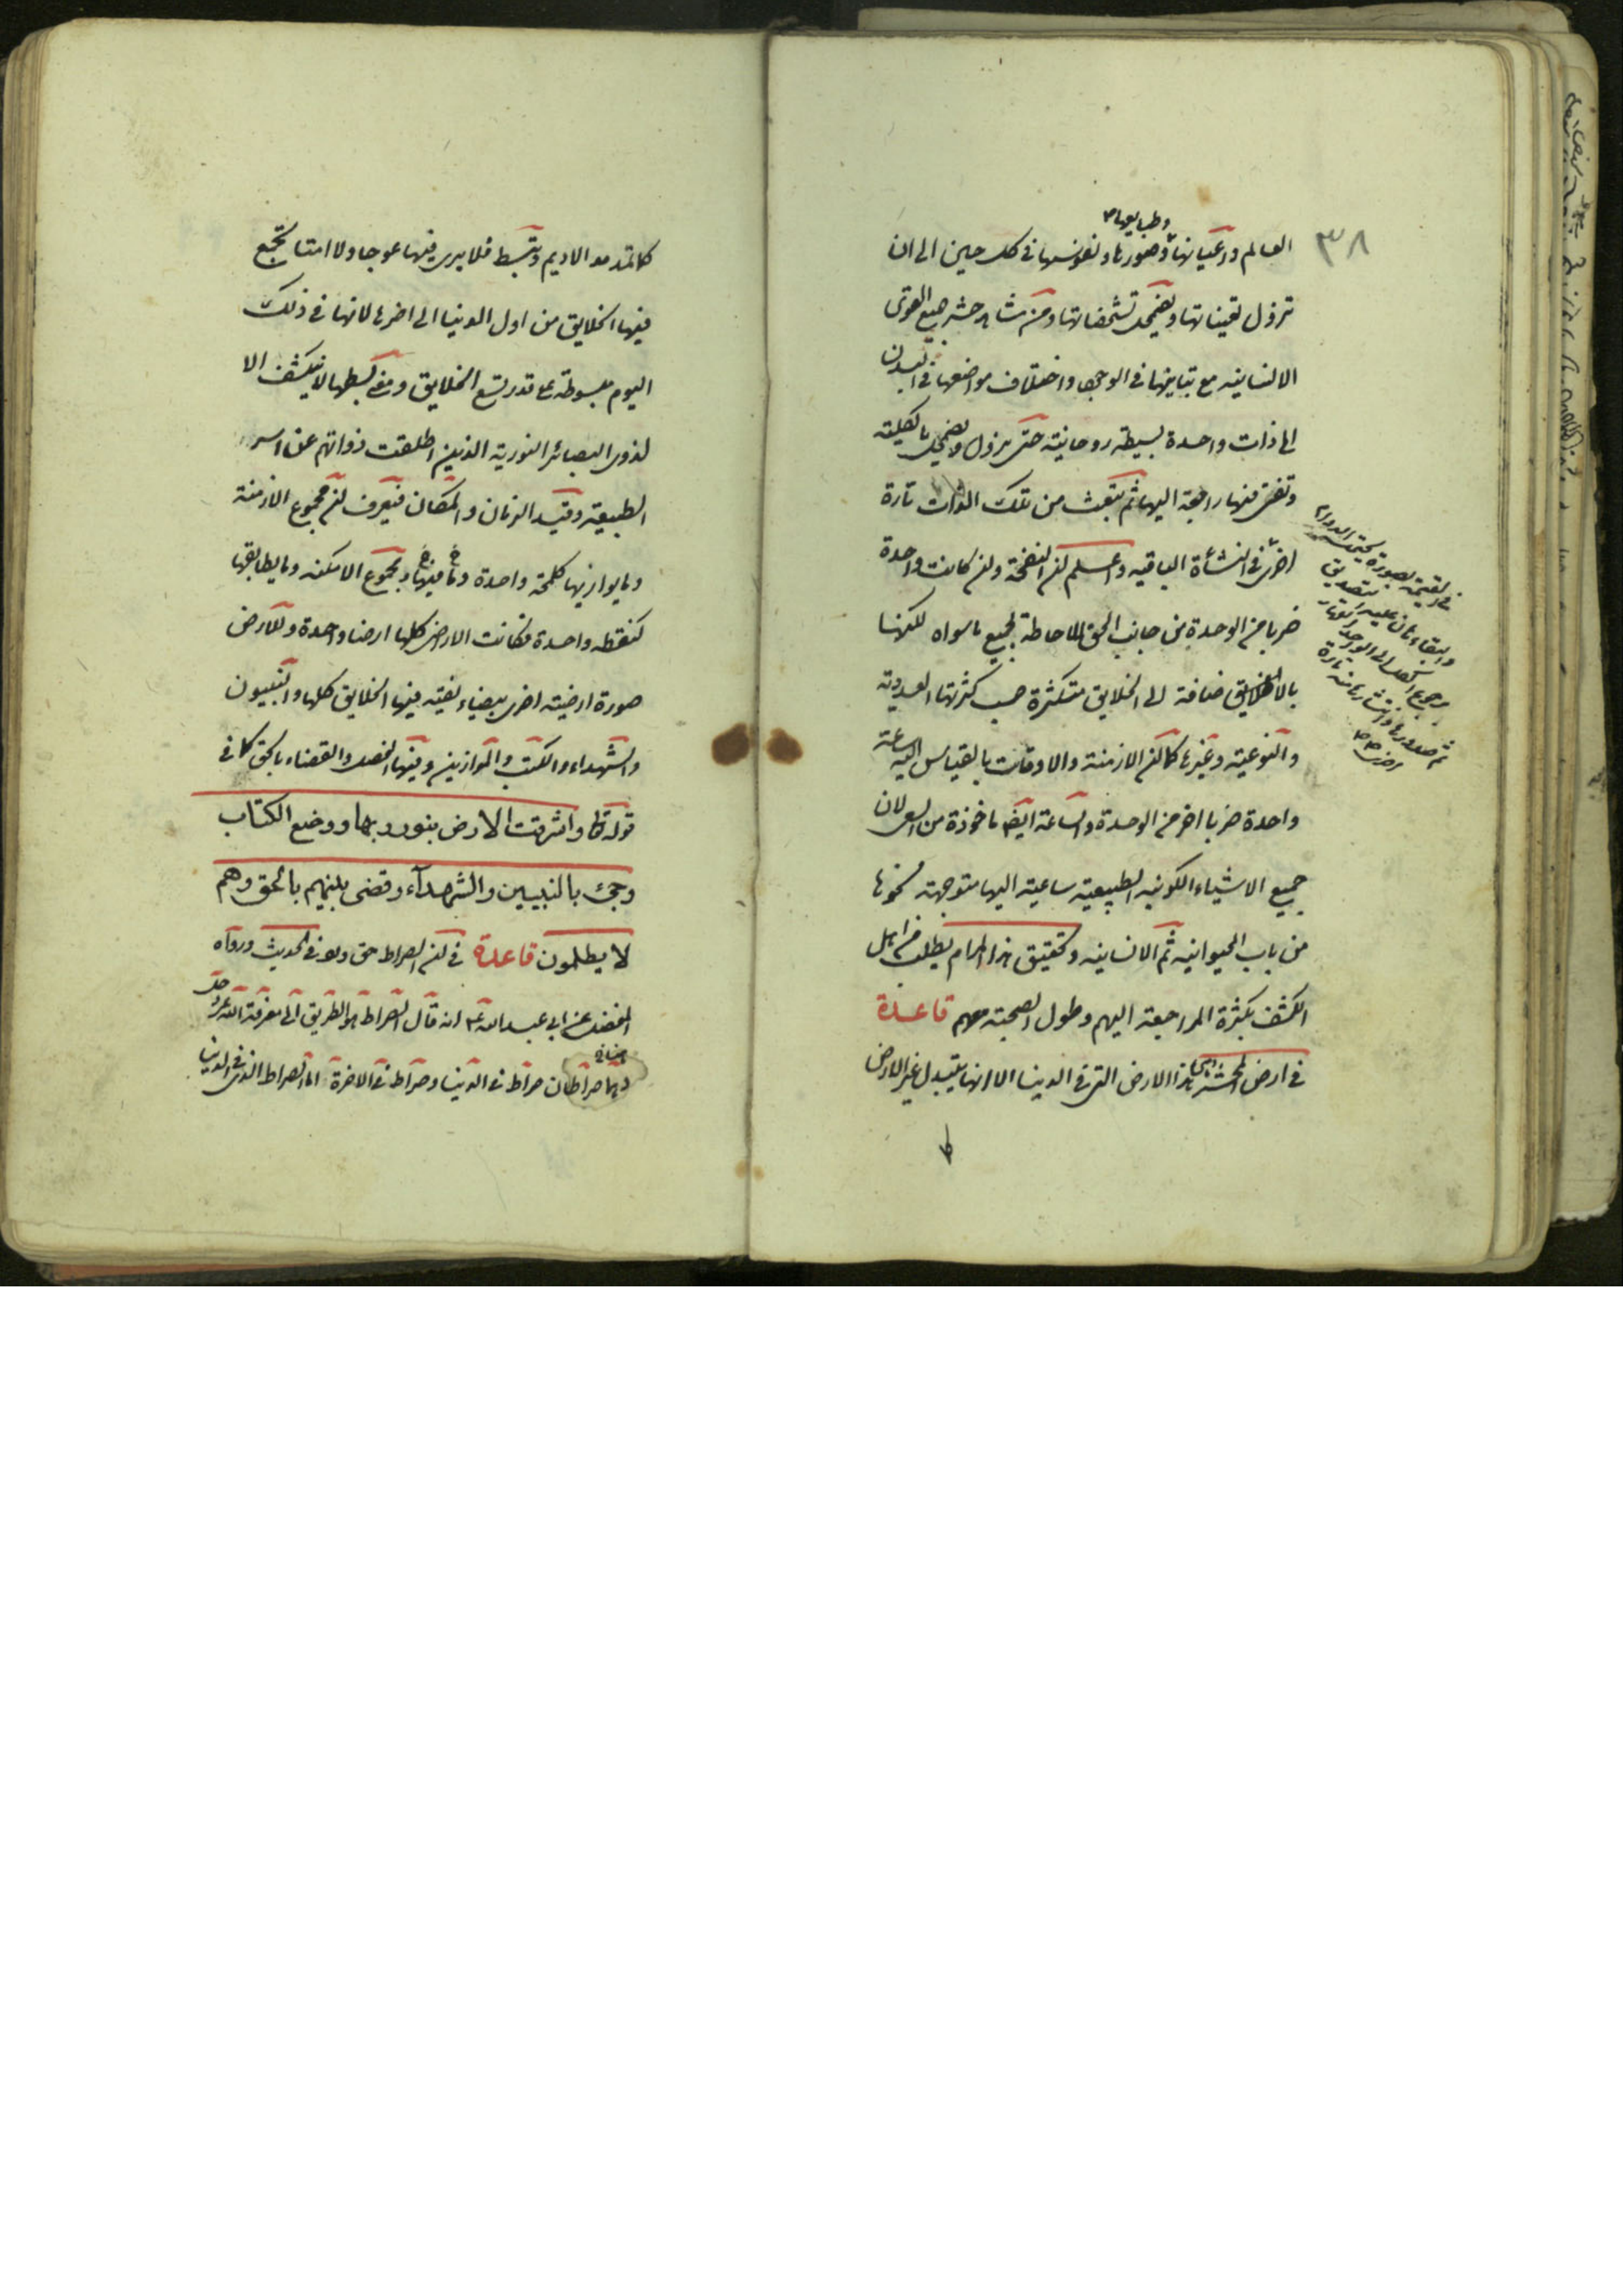 ٣٨
وطبايعها
العالم واعيانها وصورها ونفوسها في كل حين الى ان
تزول تعيناتها ويضمحل تشخصاتها ومن شاهد حشر جميع القوى
الانسانيه مع تباينها في الوجود واختلاف مواضعها في البدن
الى ذات واحدة بسيطة روحانية حتى يزول ويضمحل بالكلية
وتفنى فيها راجعة اليها ثم تنبعث من تلك الذات تارة
اخرى في النشأة الباقيه واعلم ان النفخة وان كانت واحدة
ضربا من الوحدة من جانب الحق للاحاطة بجميع ما سواه لكنها
بالاضافة الى الخلايق متكثرة حسب كثرتها العددية
والنوعية وغيرها كما ان الازمنة والاوقات بالقياس اليه ساعة
واحدة ضربا اخر من الوحدة والساعة ايضا ماخوذة من السعي لان
جميع الاشياء الكونيه الطبيعية ساعية اليها متوجهة نحوها
من باب الحيوانيه ثم الانسانيه وتحقيق هذا المرام يطلب من اهل
الكشف بكثرة المراجعة اليهم وطول الصحبة معهم قاعدة
في ارض المحشر هي هذا الارض التي في الدنيا الا انها يتبدل غير الارض
في القيمة بصورة
والبقاء هان عليه التصديق
برجوع الكل الى الواحد القهار
ثم صدورها وانتشارها منه تارة
اخرى
كما تمد مد الاديم وتبسط فلا يرى فيها عوجا ولا امتا تجمع
فيها الخلايق من اول الدنيا الى اخرها لانها في ذلك
اليوم مبسوطة على قدر يسع الخلايق ومعنى بسطها لا ينكشف الا
لذوي البصائر النورية الذين اطلقت ذواتهم عن اسر
الطبيعة وقيد الزمان والمكان فيعرف ان مجموع الازمنة
وما يوازيها كلمحة واحدة وما فيها ومجموع الامكنه وما يطابقها
كنقطة واحدة فكانت الارض كلها ارضا واحدة وللارض
صورة ارضية اخرى بيضاء نقية فيها الخلايق كلها والنبييون
والشهداء والكتب والموازين وفيها الفصل والقضاء بالحق كما في
قوله تعا واشرقت الارض بنور ربها ووضع الكتاب
وجئ بالنبيين والشهدآء وقضى بينهم بالحق وهم
لا يظلمون قاعدة في ان الصراط حق وهو في الحديث ورواه
المفضل عن ابي عبد الله ع انه قال الصراط هو الطريق الى معرفة الله عز وجل
وهما صراطان صراط في الدنيا وصراط في الاخرة اما الصراط الذي في الدنيا